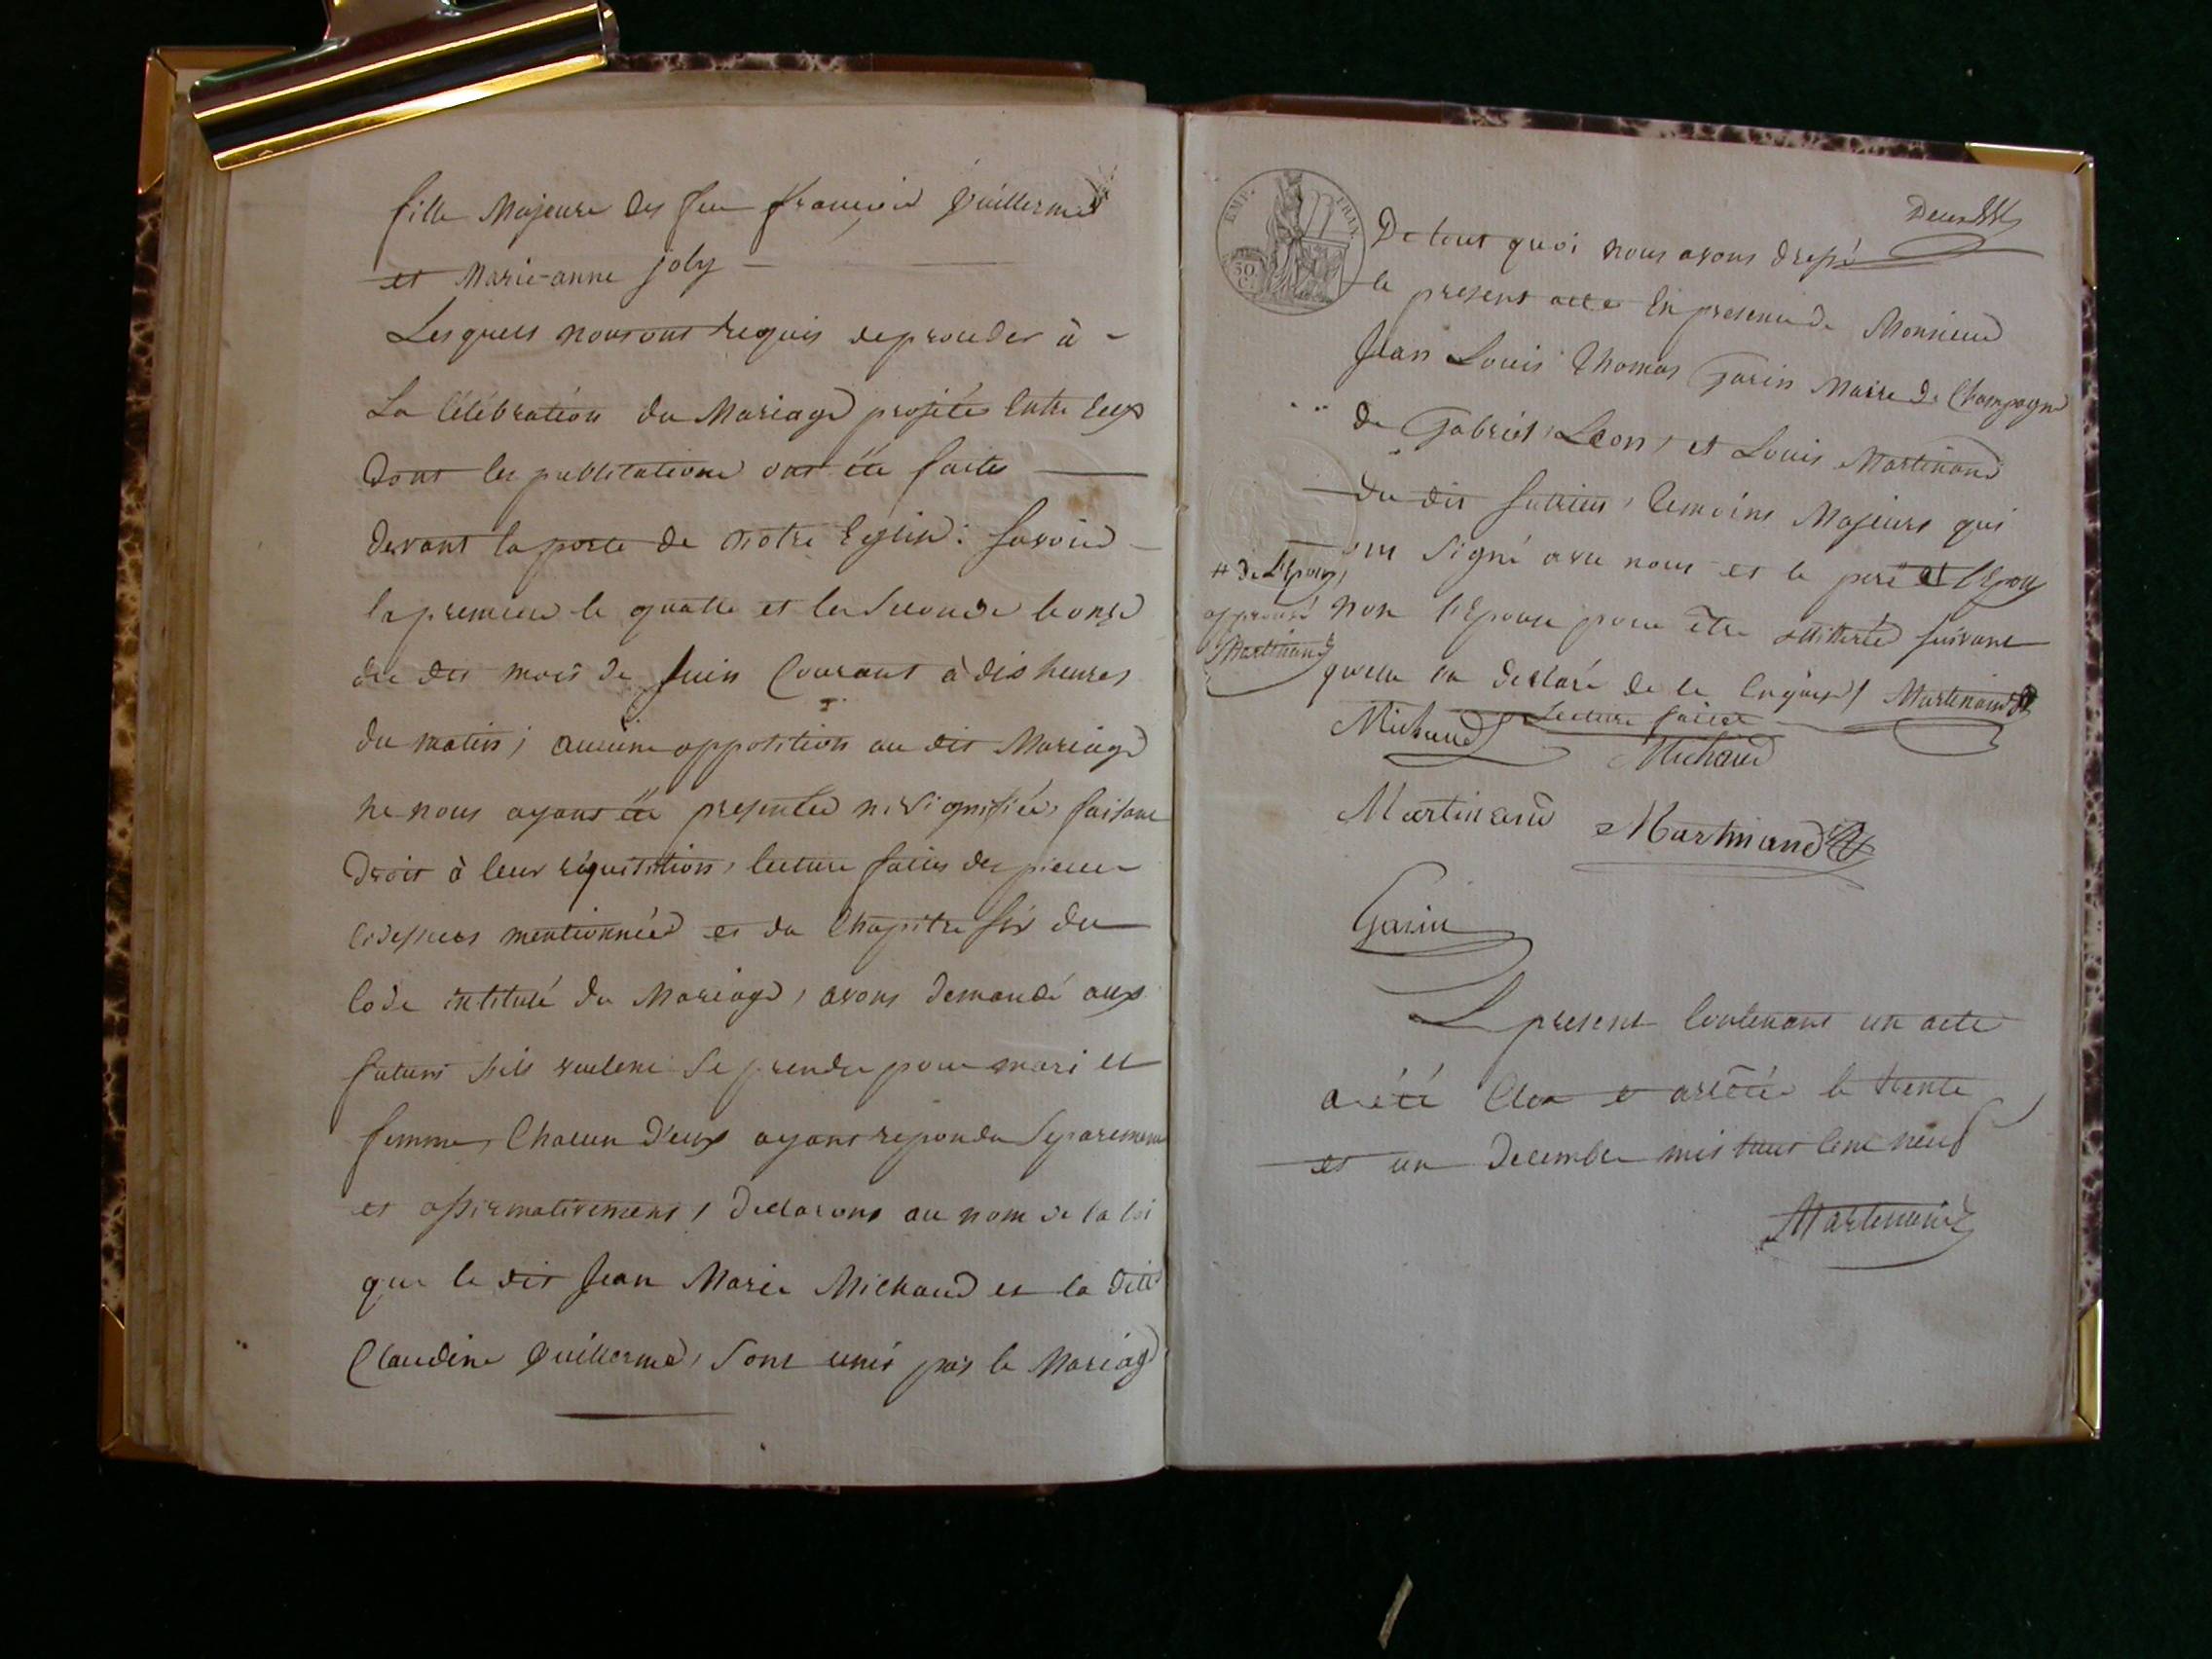 fille Majeure des feu françois Guillermet
et Marie-anne joly
Lesquels nous ont requis de proceder à
La Célébration du Mariage projété Entre Eux
dont les publications ont été faites
devant la porte de Notre Eglise: savoir
la premiere le quatre et la seconde le onze
du dit mois de Juin Courant à dix heures
du matin; aucune opposition au dit Mariage
ne nous ayant été présentée ni signifiée, faisant
Droit à leur réquisition, lecture faites des pieces
ci dessus mentionnées et du Chapitre six du
Code intitulé du Mariage, avons demandé aux
futurs s'ils veulent se prendre pour mari et
femme, Chacun d'eux ayant repondu Separement
et affirmativement, Declarons au nom de la loi
que le dit Jean Marie Michaud et la dite
Claudine Guillermet, sont unis par le Mariage
Deux
EMP. FRAN.
50 C.
De tout quoi nous avons dressé
le present acte En presence de Monsieur
Jean Louis Thomas Garin Maire de Champagne
de Gabriel, Léon, et Louis Martinand
du dit Sutrieu, temoins Majeurs qui
ont Signé avec nous et le pere et l'Epoux
# de l'Epoux,
approuvé
Martinand
non l'Epouse pour être illitérée suivant
qu'elle l'a declaré de ce Enquise, Martinand
Lecture faite
Michaud Michaud
Martinand Martinand
Garin
Le present Contenant un acte
a été Clos et arrêté le trente
et un decembre mil huit Cent neuf
Martinand